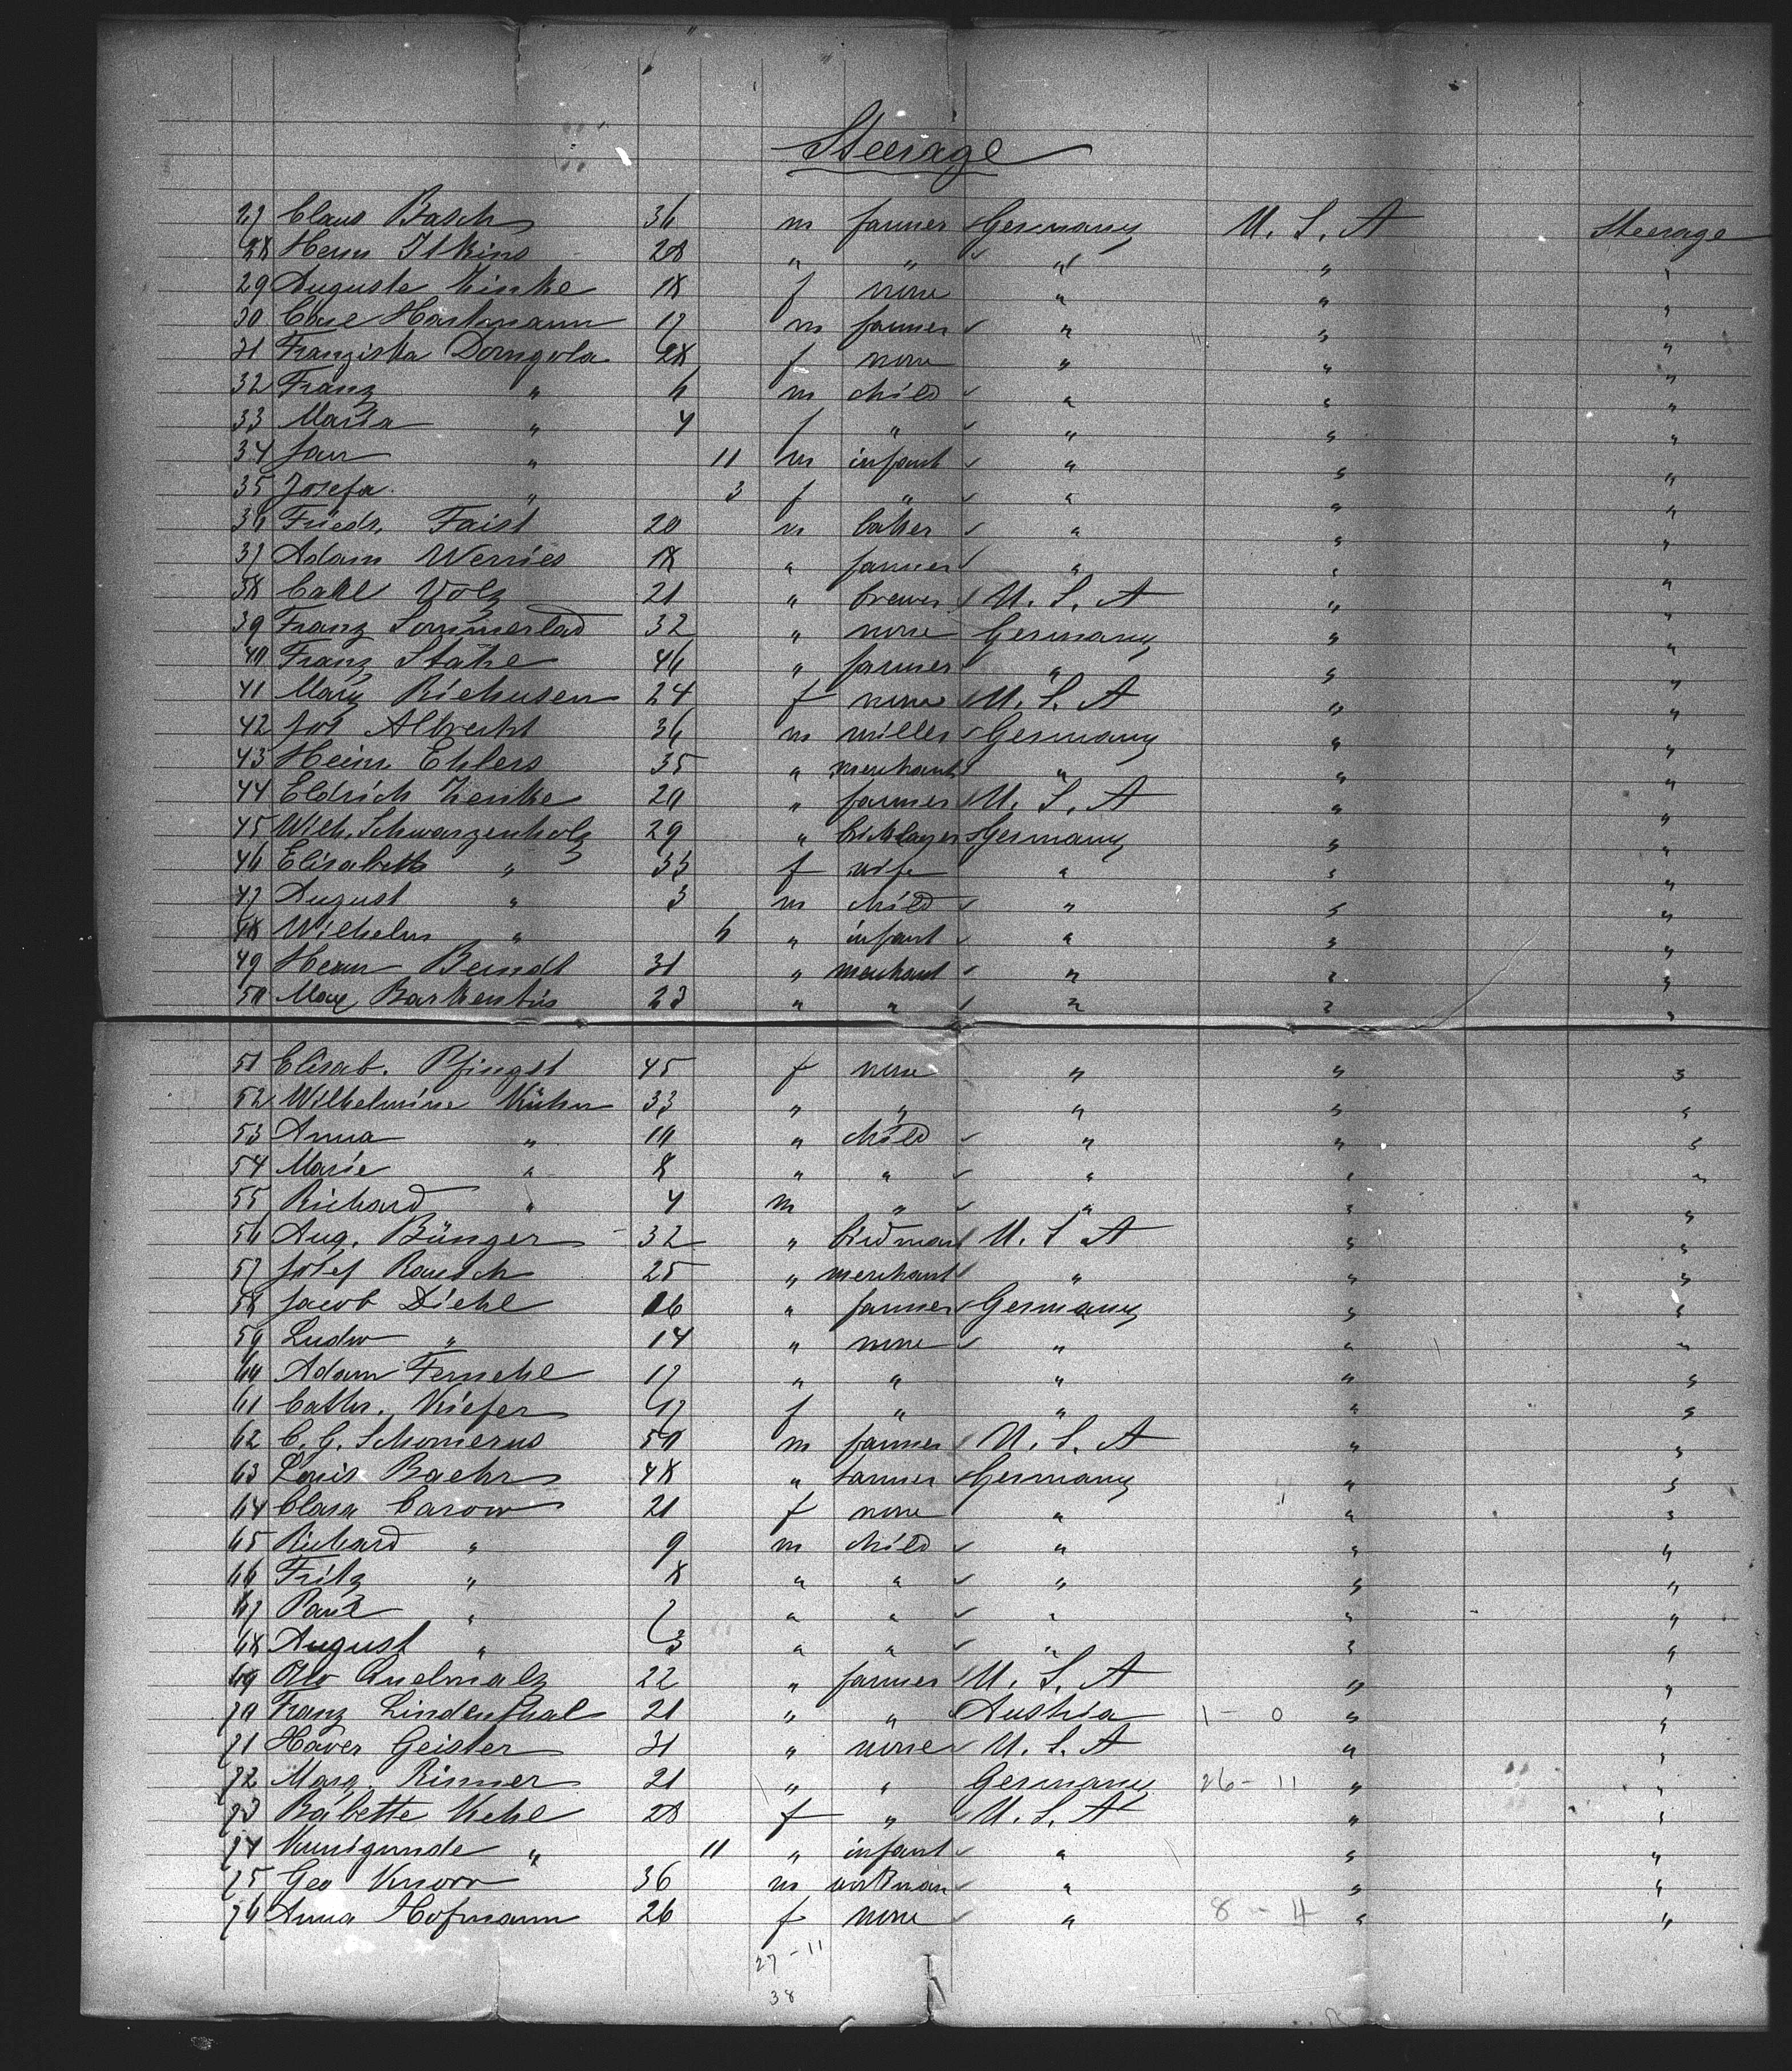 Steerage
27 Claus Basch 36 m farmer Germany U. S. A Steerage
28 Herm Itkins 28 " " " " "
29 Auguste Zinke 18 f none " " "
30 Carl Hartmann 17 m farmer " " "
31 Franziska Dorngola 28 f none " " "
32 Franz " 6 m child " " "
33 Maria " 4 f " " " "
34 Jan " 11 m infant " " "
35 Josefa " 3 f " " " "
36 Friedr. Faist 20 m baker " " "
37 Adam Werries 18 " farmer " " "
38 Carl Volz 21 " brewer U. S. A " "
39 Franz Sommerlad 32 " none Germany " "
40 Franz Stähl 46 " farmer " " "
41 Mary Riehusen 24 f none U. S. A " "
42 Jos Albrecht 36 m miller Germany " "
43 Heinr Ehlers 35 " merchant " " "
44 Eldrich Zenke 20 " farmer U. S. A " "
45 Wilh. Schwarzenholz 29 " bricklayer Germany " "
46 Elisabeth " 33 f wife " " "
47 August " 3 m child " " "
48 Wilhelm " 6 " infant " " "
49 Herm Berndt 31 " merchant " " "
50 Max Barkentin 23 " " " " "
51 Elisab. Pfingst 45 f none " " "
52 Wilhelmine Kühn 33 " " " " "
53 Anna " 10 " child " " "
54 Marie " 8 " " " " "
55 Richard " 4 m " " " "
56 Aug. Bünger 32 " birdman U. S. A " "
57 Josef Rausch 25 " merchant " " "
58 Jacob Diehl 16 " farmer Germany " "
59 Ludw " 14 " none " " "
60 Adam Fernehl 17 " " " " "
61 Cathr. Kiefer 17 f " " " "
62 C. G. Schomerus 50 m farmer U. S. A " "
63 Louis Baehr 48 " farmer Germany " "
64 Clara Carow 21 f none " " "
65 Richard " 9 m child " " "
66 Fritz " 8 " " " " "
67 Paul " 7 " " " " "
68 August " 3 " " " " "
69 Otto Quelmalz 22 " farmer U. S. A " "
70 Franz Lindenthal 21 " " Austria 1 - 0 " "
71 Xaver Geisler 31 " none U. S. A " "
72 Marg. Rimmer 21 " " Germany 26 - 11 " "
73 Babette Kehl 28 f " U. S. A " "
74 Kunigunde " 11 " infant " " "
75 Geo Knorr 36 m workman " " "
76 Anna Hofmann 26 f none " 8 - 4 " "
27 - 11
38